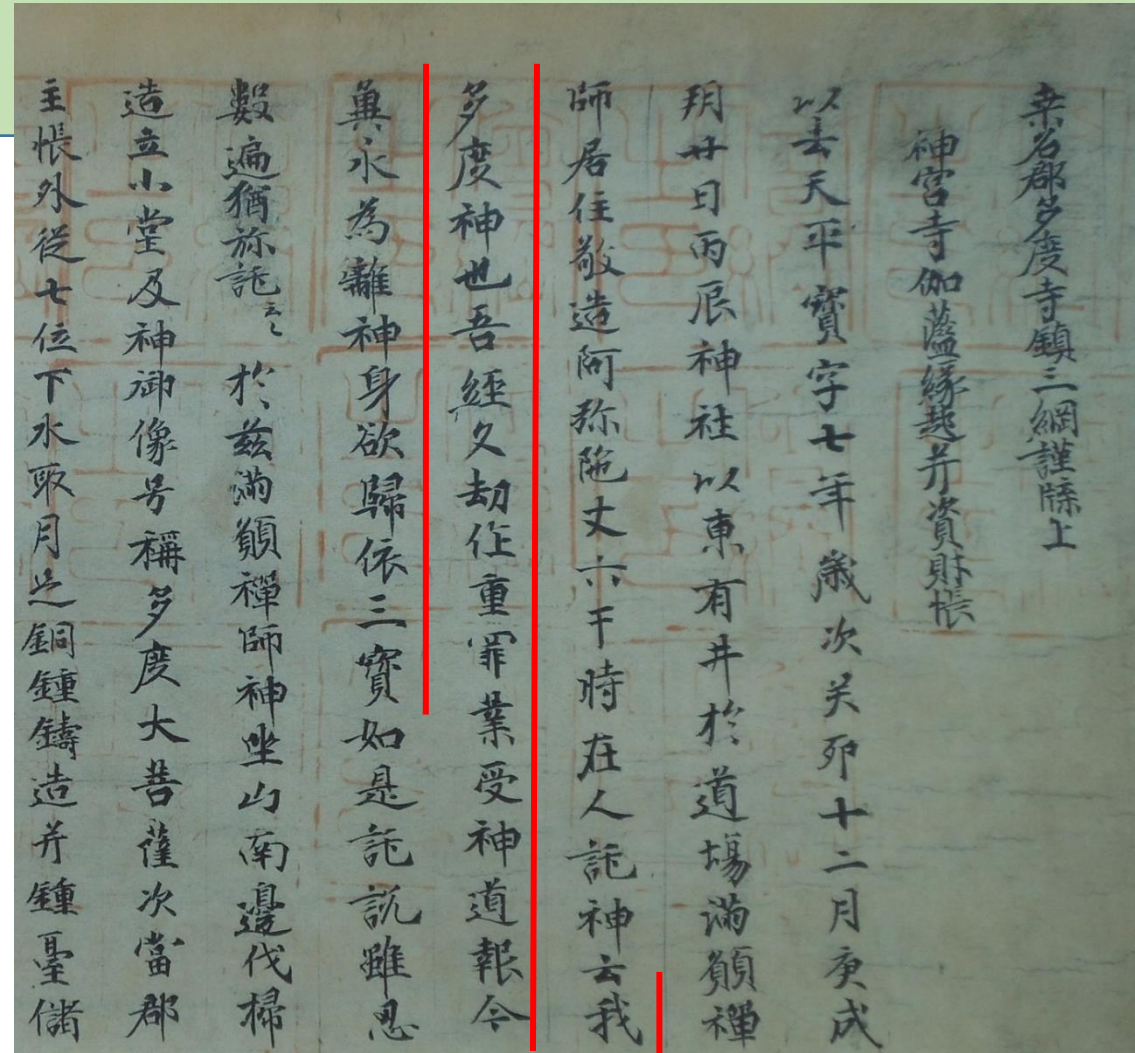 桑名郡多度寺鎮三綱謹牒上
神宮寺伽藍縁起并資財帳
以去天平寳字七年歳次癸卯十二月庚戌
朔廿日丙辰神社以東有井於道場満願禅
師居住敬造阿弥陁丈六于時在人託神云我
多度神也吾經久劫作重罪業受神道報今
冀永為離神身欲歸依三寳如是託訖雖忍
數遍猶弥託云々於茲満願禅師神坐山南邊伐掃
造立小堂及神御像号稱多度大菩薩次當郡
主帳外從七位下水取月足銅鍾鑄造并鍾臺儲